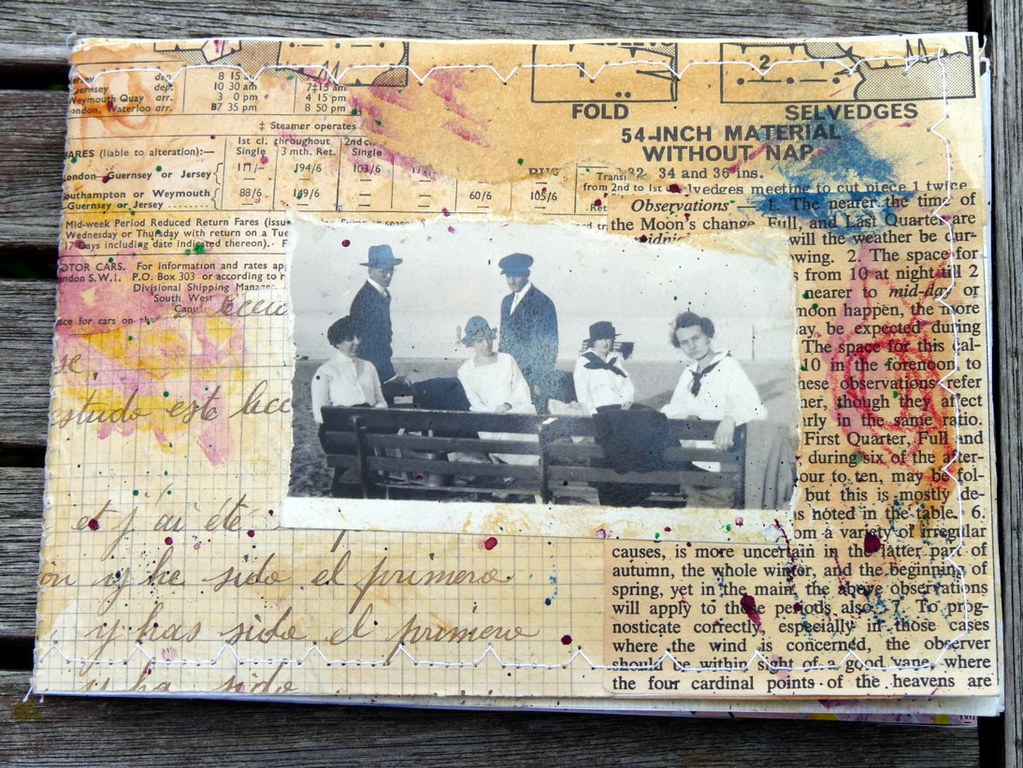 2
FOLD
SELVEDGES
54-INCH MATERIAL
WITHOUT NAP
32 34 and 36 ins.
selvedges meeting to cut piece 1 twice
dep. 8 15
Guernsey dept. 10 30 am 7 15 am
Weymouth Quay arr. 3 0 pm 4 15 pm
London, Waterloo arr. 7 35 pm 8 50 pm
‡ Steamer operates
FARES (liable to alteration):—
1st cl. throughout 2nd
Single 3 mth. Ret. Single
London-Guernsey or Jersey 194/6 103/6
Southampton or Weymouth 88/6 149/6 60/6 105/6
-Guernsey or Jersey
Transi
from 2nd to 1st
Ret
Mid-week Period Reduced Return Fares
Wednesday or Thursday with return on a Tue
17 Days including date indicated thereon). F
MOTOR CARS. For information and rates ap
London S.W.1. P.O. Box 303 or according to r
Divisional Shipping Manager
South West
space for cars on the
se,
estudo esto
et j'ai été
y he sido el primero
y has sido el primero
y ha sido
Observations — 1. The nearer the time of
the Moon's change, Full, and Last Quarter are
midni will the weather be dur-
wing. 2. The space for
s from 10 at night till 2
nearer to mid-day or
noon happen, the more
ay be expected during
The space for this cal-
10 in the forenoon to
hese observations refer
her, though they affect
rly in the same ratio.
First Quarter, Full and
during six of the after-
our to ten, may be fol-
but this is mostly de-
s noted in the table. 6.
om a variety of irregular
causes, is more uncertain in the latter part of
autumn, the whole winter, and the beginning of
spring, yet in the main, the above observations
will apply to those periods also. 7. To prog-
nosticate correctly, especially in those cases
where the wind is concerned, the observer
should be within sight of a good vane, where
the four cardinal points of the heavens are